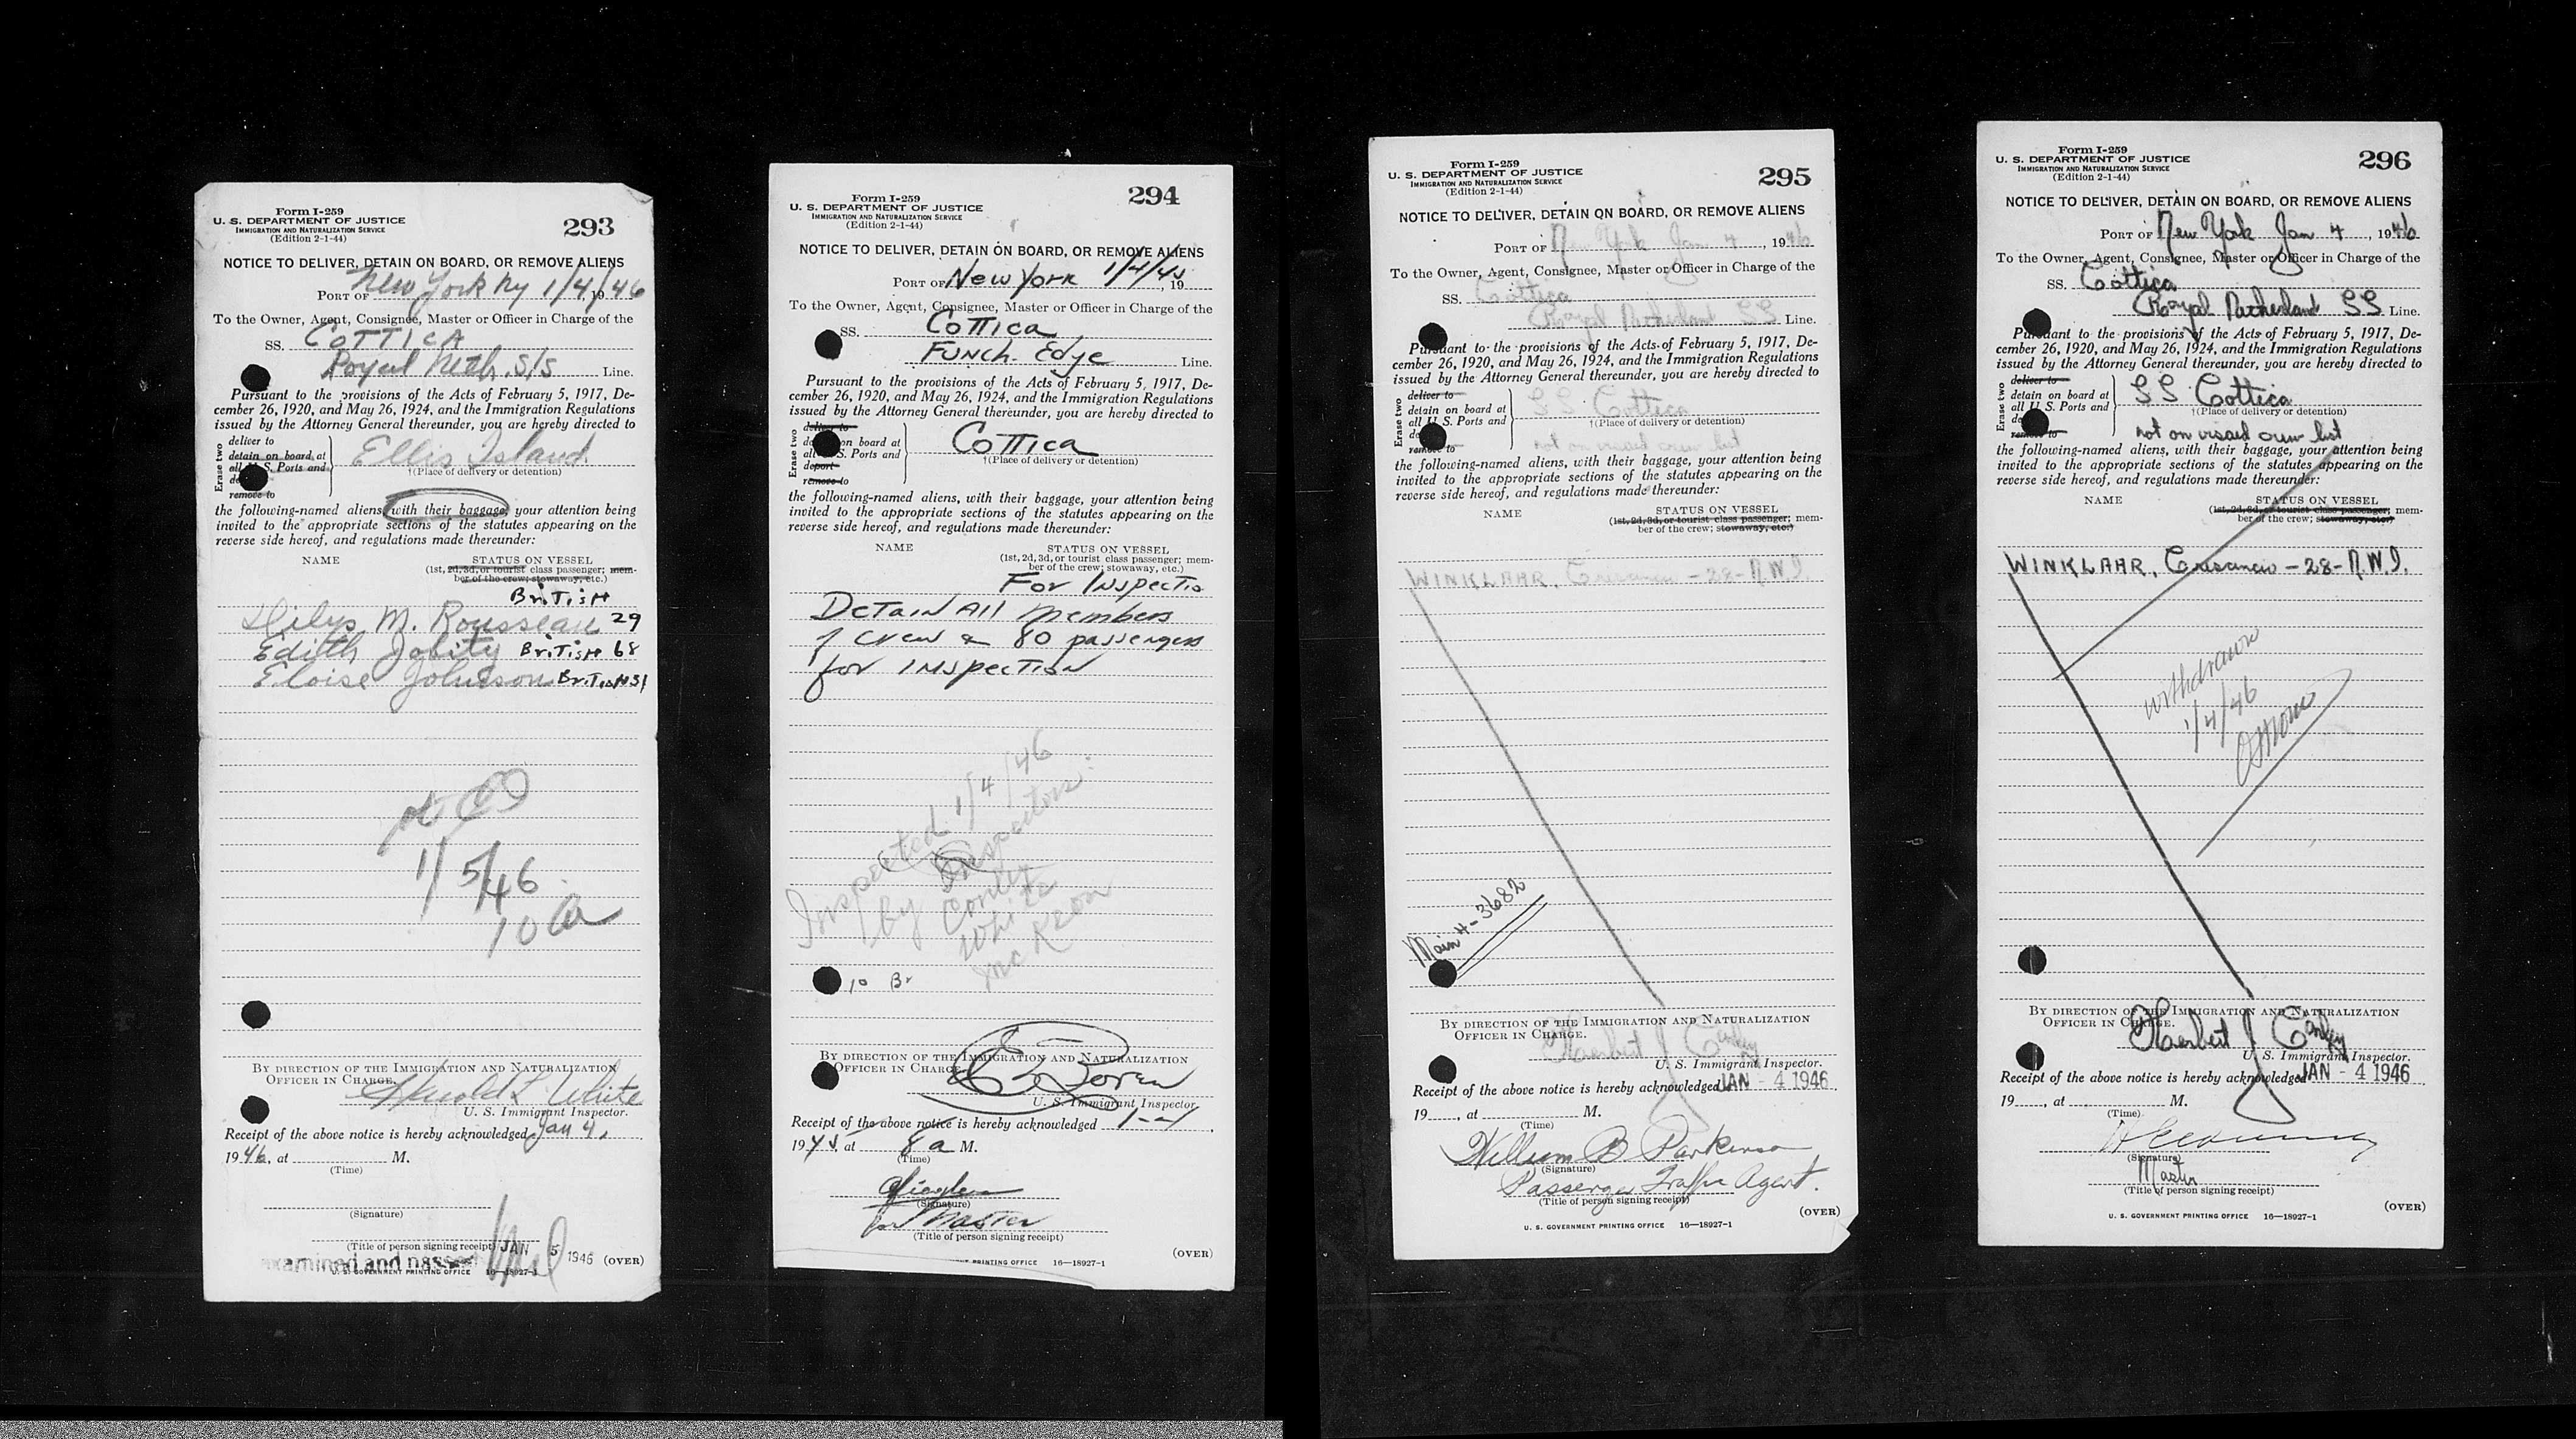 Form I-259
U. S. DEPARTMENT OF JUSTICE
IMMIGRATION AND NATURALIZATION SERVICE
(Edition 2-1-44)
293
NOTICE TO DELIVER, DETAIN ON BOARD, OR REMOVE ALIENS
PORT OF New York Ny 1/4/1946
To the Owner, Agent, Consignee, Master or Officer in Charge of the
SS. COTTICA
Royal Neth. S/S Line.
Pursuant to the provisions of the Acts of February 5, 1917, De-
cember 26, 1920, and May 26, 1924, and the Immigration Regulations
issued by the Attorney General thereunder, you are hereby directed to
Erase two
deliver to
detain on board at
all U. S. Ports and
remove to
Ellis Island
†(Place of delivery or detention)
the following-named aliens, with their baggage, your attention being
invited to the appropriate sections of the statutes appearing on the
reverse side hereof, and regulations made thereunder:
NAME STATUS ON VESSEL
(1st, 2d, 3d, or tourist class passenger; mem-
ber of the crew; stowaway, etc.)
BRITISH
Dilys M. Rousseau 29
Edith Jobity BRITISH 68
Eloise Johnson BRITISH 31
1/5/46
10 a
BY DIRECTION OF THE IMMIGRATION AND NATURALIZATION
OFFICER IN CHARGE.
Harold L White
U. S. Immigrant Inspector.
Receipt of the above notice is hereby acknowledged Jan 4,
1946, at M.
(Time)
(Signature)
(Title of person signing receipt)
JAN 5 1946
(OVER)
examined and passed
U. S. GOVERNMENT PRINTING OFFICE 16—18927-1
Form I-259
U. S. DEPARTMENT OF JUSTICE
IMMIGRATION AND NATURALIZATION SERVICE
(Edition 2-1-44)
294
NOTICE TO DELIVER, DETAIN ON BOARD, OR REMOVE ALIENS
PORT OF New York 1/4/45, 19
To the Owner, Agent, Consignee, Master or Officer in Charge of the
SS. Cottica
Funch. Edye Line.
Pursuant to the provisions of the Acts of February 5, 1917, De-
cember 26, 1920, and May 26, 1924, and the Immigration Regulations
issued by the Attorney General thereunder, you are hereby directed to
Erase two
deliver to
on board at
all S. Ports and
deport
remove to
Cottica
†(Place of delivery or detention)
the following-named aliens, with their baggage, your attention being
invited to the appropriate sections of the statutes appearing on the
reverse side hereof, and regulations made thereunder:
NAME STATUS ON VESSEL
(1st, 2d, 3d, or tourist class passenger; mem-
ber of the crew; stowaway, etc.)
For Inspectio
Detain All members
of crew & 80 passengers
for inspection
Inspected 1/4/46
By Inspectors:
Conley
White
McKeon
10 Br
BY DIRECTION OF THE IMMIGRATION AND NATURALIZATION
OFFICER IN CHARGE
U. S. Immigrant Inspector
Receipt of the above notice is hereby acknowledged 1-4
1945, at 8 a M.
(Time)
(Signature)
for Master
(Title of person signing receipt)
(OVER)
PRINTING OFFICE 16—18927-1
Form I-259
U. S. DEPARTMENT OF JUSTICE
IMMIGRATION AND NATURALIZATION SERVICE
(Edition 2-1-44)
295
NOTICE TO DELIVER, DETAIN ON BOARD, OR REMOVE ALIENS
PORT OF New York Jan 4, 1946
To the Owner, Agent, Consignee, Master or Officer in Charge of the
SS. Cottica
Royal Netherland SS Line.
Pursuant to the provisions of the Acts of February 5, 1917, De-
cember 26, 1920, and May 26, 1924, and the Immigration Regulations
issued by the Attorney General thereunder, you are hereby directed to
Erase two
deliver to
detain on board at
all U. S. Ports and
remove to
SS Cottica
†(Place of delivery or detention)
not on visaed crew list
the following-named aliens, with their baggage, your attention being
invited to the appropriate sections of the statutes appearing on the
reverse side hereof, and regulations made thereunder:
NAME STATUS ON VESSEL
(1st, 2d, 3d, or tourist class passenger; mem-
ber of the crew; stowaway, etc.)
WINKLAAR, Cresencio - 28 - N.W.I.
Main 4-3682
BY DIRECTION OF THE IMMIGRATION AND NATURALIZATION
OFFICER IN CHARGE.
Herbert J Conley
U. S. Immigrant Inspector.
Receipt of the above notice is hereby acknowledged JAN - 4 1946
19, at M.
(Time)
William B Parkinson
(Signature)
Passenger Traffic Agent.
(Title of person signing receipt)
(OVER)
U. S. GOVERNMENT PRINTING OFFICE 16—18927-1
Form I-259
U. S. DEPARTMENT OF JUSTICE
IMMIGRATION AND NATURALIZATION SERVICE
(Edition 2-1-44)
296
NOTICE TO DELIVER, DETAIN ON BOARD, OR REMOVE ALIENS
PORT OF New York Jan 4, 1946
To the Owner, Agent, Consignee, Master or Officer in Charge of the
SS. Cottica
Royal Netherland SS Line.
Pursuant to the provisions of the Acts of February 5, 1917, De-
cember 26, 1920, and May 26, 1924, and the Immigration Regulations
issued by the Attorney General thereunder, you are hereby directed to
Erase two
deliver to
detain on board at
all U. S. Ports and
remove to
SS Cottica
†(Place of delivery or detention)
not on visaed crew list
the following-named aliens, with their baggage, your attention being
invited to the appropriate sections of the statutes appearing on the
reverse side hereof, and regulations made thereunder:
NAME STATUS ON VESSEL
(1st, 2d, 3d, or tourist class passenger; mem-
ber of the crew; stowaway, etc.)
WINKLAAR, Cresencio - 28 - N.W.I.
withdrawn
1/4/46
BY DIRECTION OF THE IMMIGRATION AND NATURALIZATION
OFFICER IN CHARGE.
Herbert J Conley
U. S. Immigrant Inspector.
Receipt of the above notice is hereby acknowledged JAN - 4 1946
19, at M.
(Time)
(Signature)
Master
(Title of person signing receipt)
(OVER)
U. S. GOVERNMENT PRINTING OFFICE 16—18927-1